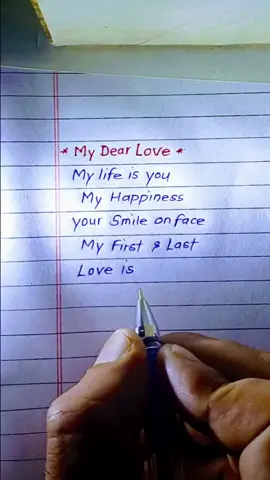 * My Dear Love *
My life is you
My Happiness
your Smile on face
My First & Last
Love is